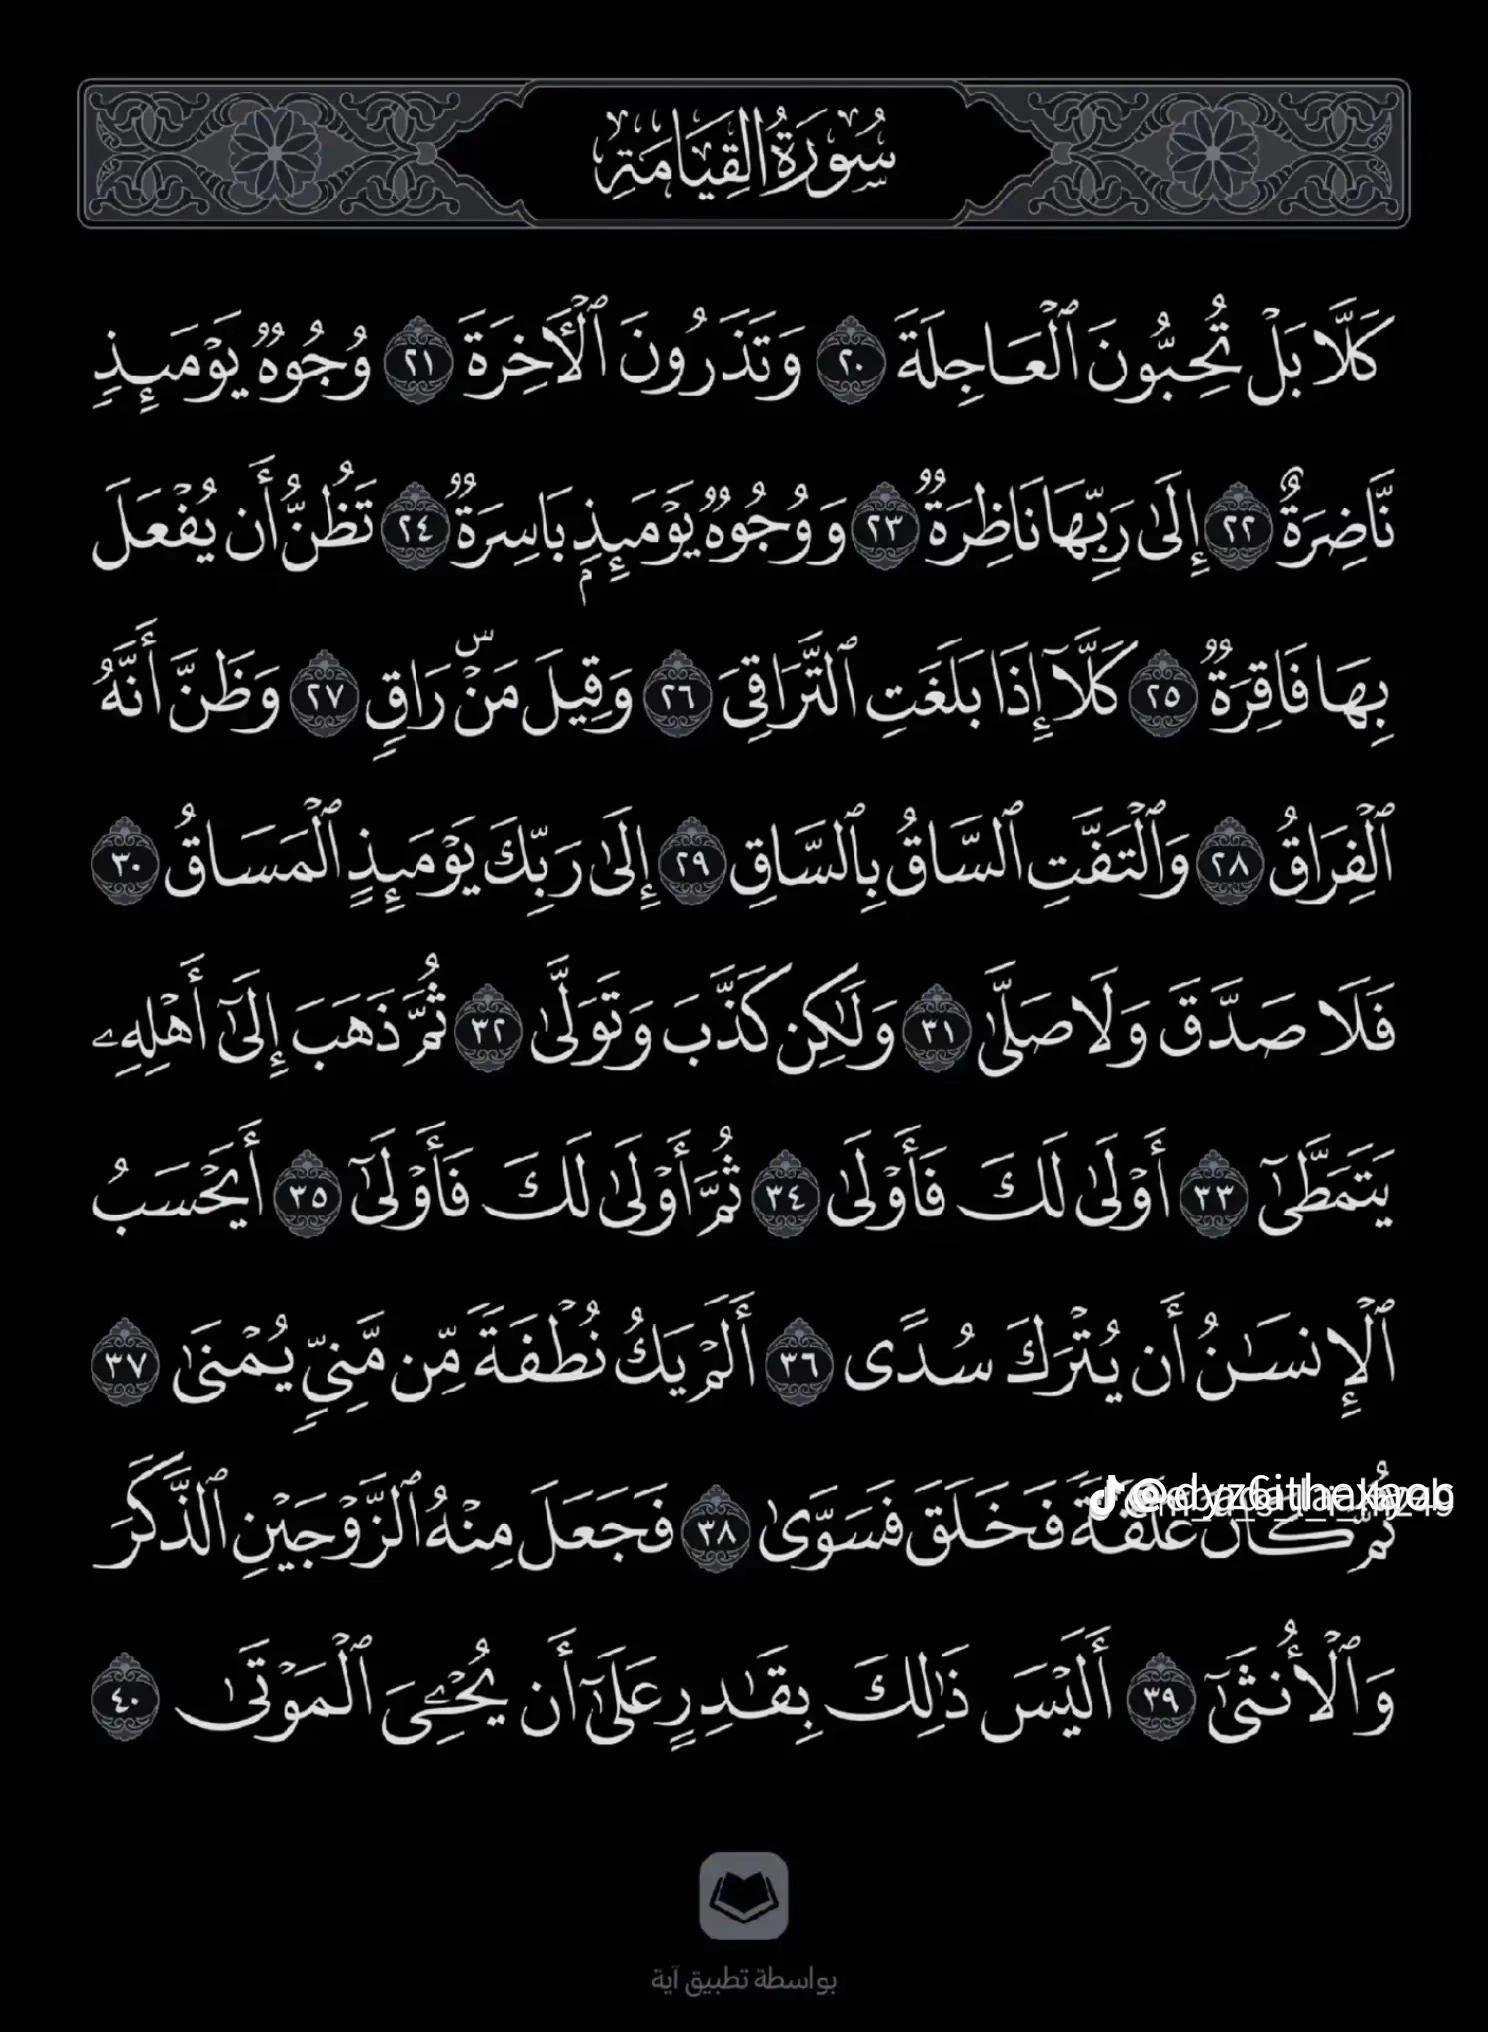 سُورَةُ القِيَامَةِ
كَلَّا بَلۡ تُحِبُّونَ ٱلۡعَاجِلَةَ ٢٠ وَتَذَرُونَ ٱلۡأٓخِرَةَ ٢١ وُجُوهٞ يَوۡمَئِذٖ
نَّاضِرَةٌ ٢٢ إِلَىٰ رَبِّهَا نَاظِرَةٞ ٢٣ وَوُجُوهٞ يَوۡمَئِذِۭ بَاسِرَةٞ ٢٤ تَظُنُّ أَن يُفۡعَلَ
بِهَا فَاقِرَةٞ ٢٥ كَلَّآ إِذَا بَلَغَتِ ٱلتَّرَاقِيَ ٢٦ وَقِيلَ مَنۡۜ رَاقٖ ٢٧ وَظَنَّ أَنَّهُ
ٱلۡفِرَاقُ ٢٨ وَٱلۡتَفَّتِ ٱلسَّاقُ بِٱلسَّاقِ ٢٩ إِلَىٰ رَبِّكَ يَوۡمَئِذٍ ٱلۡمَسَاقُ ٣٠
فَلَا صَدَّقَ وَلَا صَلَّىٰ ٣١ وَلَٰكِن كَذَّبَ وَتَوَلَّىٰ ٣٢ ثُمَّ ذَهَبَ إِلَىٰٓ أَهۡلِهِۦ
يَتَمَطَّىٰٓ ٣٣ أَوۡلَىٰ لَكَ فَأَوۡلَىٰ ٣٤ ثُمَّ أَوۡلَىٰ لَكَ فَأَوۡلَىٰٓ ٣٥ أَيَحۡسَبُ
ٱلۡإِنسَٰنُ أَن يُتۡرَكَ سُدًى ٣٦ أَلَمۡ يَكُ نُطۡفَةٗ مِّن مَّنِيّٖ يُمۡنَىٰ ٣٧
ثُمَّ كَانَ عَلَقَةٗ فَخَلَقَ فَسَوَّىٰ ٣٨ فَجَعَلَ مِنۡهُ ٱلزَّوۡجَيۡنِ ٱلذَّكَرَ
وَٱلۡأُنثَىٰٓ ٣٩ أَلَيۡسَ ذَٰلِكَ بِقَٰدِرٍ عَلَىٰٓ أَن يُحۡـِۧيَ ٱلۡمَوۡتَىٰ ٤٠
بواسطة تطبيق آية